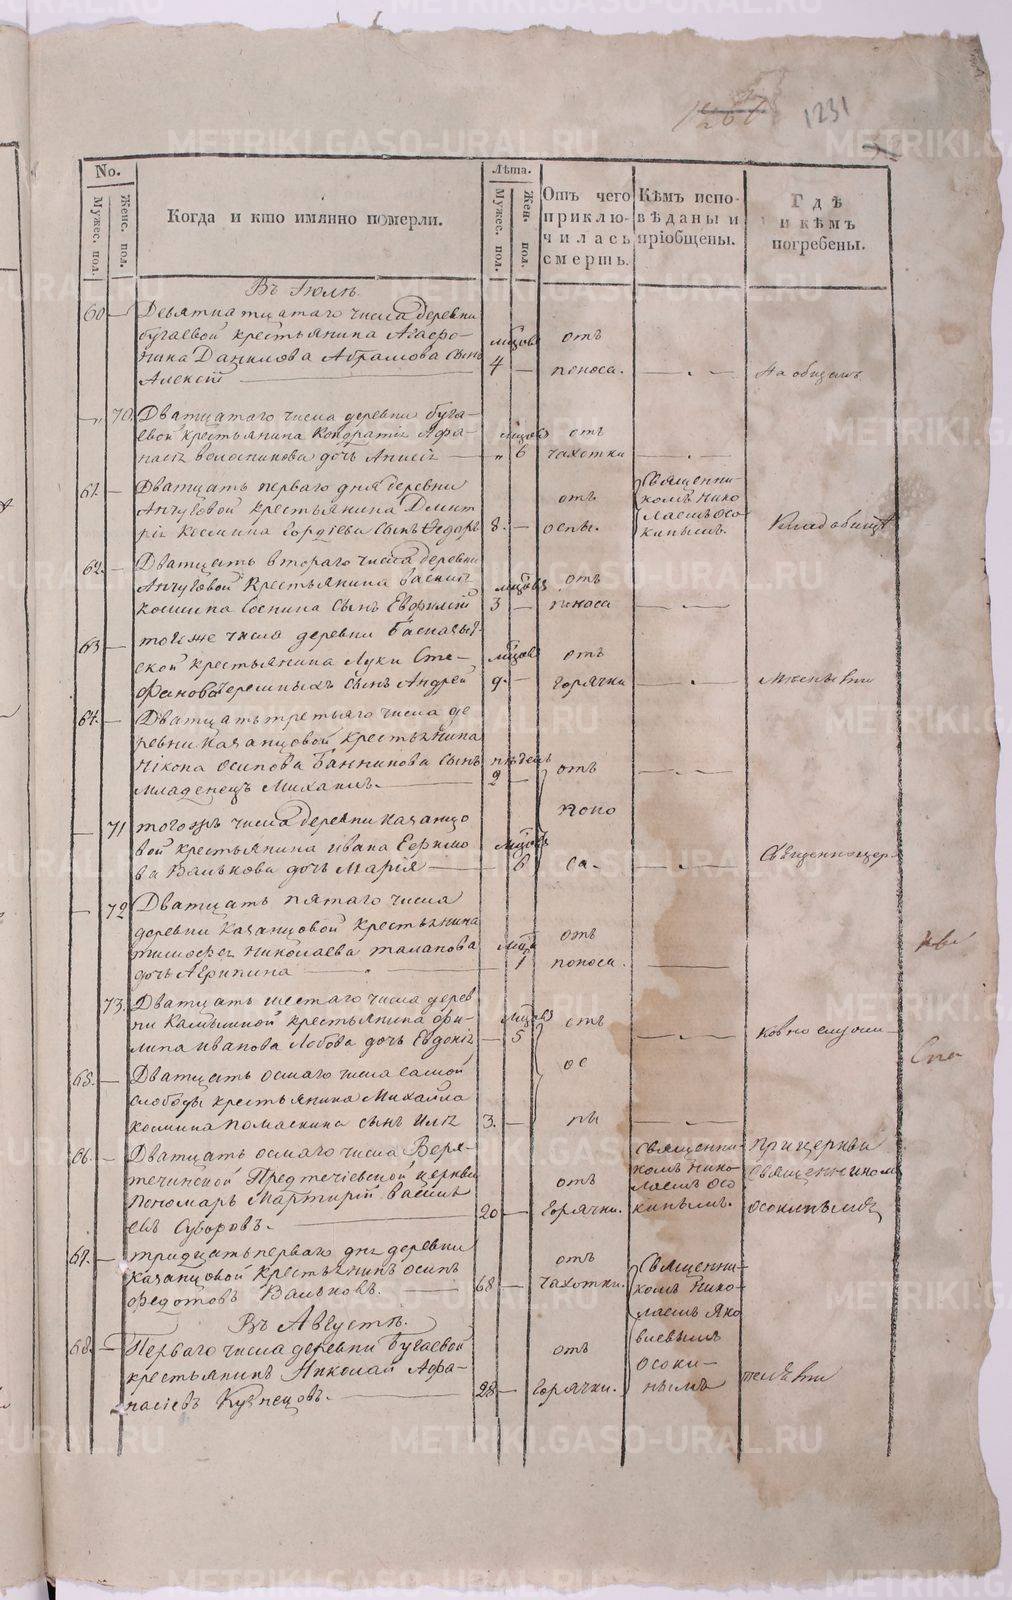 1231
No.
Мужес. пол.
Женс. пол.
Когда и кто имянно померли.
Лѣта.
Мужес. пол.
Жен. пол.
Отъ чего
приклю-
чилась
смерть.
Кѣмъ испо-
вѣданы и
пріобщены.
Гдѣ
и кѣмъ
погребены.
Въ Іюлѣ
60 — Девятнатцатаго числа деревни
бугаевой крестьянина Агафо-
ника Данилова Абрамова сынъ
Алексій
мцовъ
4 —
отъ
поноса.
На общемъ
70. Дватцатаго числа деревни буга-
евой крестьянина Кондратія Афа-
насія волосникова дочь
мцовъ
" 6
отъ
чахотки
61 — Дватцать перваго дня деревни
Анчуговой крестьянина Дмит
рія Космина Гордіева сынъ Ѳедоръ
8. —
отъ
оспы.
Священни-
комъ Нико
лаемъ Осо
кинымъ.
Кладбищѣ
62. — Дватцать втораго числа деревни
Анчуговой крестьянина Василія
Космина Соснина сынъ Евфимій
мцовъ
3 —
отъ
поноса
63 — тогоже числа деревни
ской крестьянина Луки Сте-
фанова Черемныхъ сынъ Андрей
мцовъ
9. —
отъ
горячки
64. — Дватцать третьяго числа де
ревни Казанцовой крестьянина
Никона Осипова Банникова сынъ
младенецъ Михаилъ.
недель
2 —
отъ
поно
71 тогожъ числа деревни Казанцо
вой крестьянина Ивана Ефимо
ва Валькова дочь Марія
мцовъ
6
са.
Священноцер
72 Дватцать пятаго числа
деревни Казанцовой крестьянина
тимофея Николаева талапова
дочь Агрипина
1
отъ
поноса.
73. Дватцать шестаго числа дерев
ни Камышной крестьянина Фи-
липа Иванова Лобова дочь Евдокія
мцовъ
5
отъ
ос
ковно служи-
65. — Дватцать осмаго числа самой
слободы крестьянина Михайла
Космина Помаскина сынъ Илія
3. —
пы
66. — Дватцать осмаго числа Верх-
теченской Предтечіевской церкви
Пономарь Мартирій Василь
евъ Суворовъ.
20 —
отъ
горячки.
Священни-
комъ Нико-
лаемъ Осо
кинымъ.
При церкви
Священникомъ
Осокинымъ
67. — тридцать перваго дня деревни
Казанцовой крестьянинъ Осипъ
Федотовъ Вальковъ.
68 —
отъ
чахотки.
Священни-
комъ Нико-
лаемъ Яко
влевымъ
Осоки-
нымъ
Въ Августѣ.
68. — Перваго числа деревни Бугаевой
крестьянинъ Николай Афа-
насіевъ Кузнецовъ.
28 —
отъ
горячки.